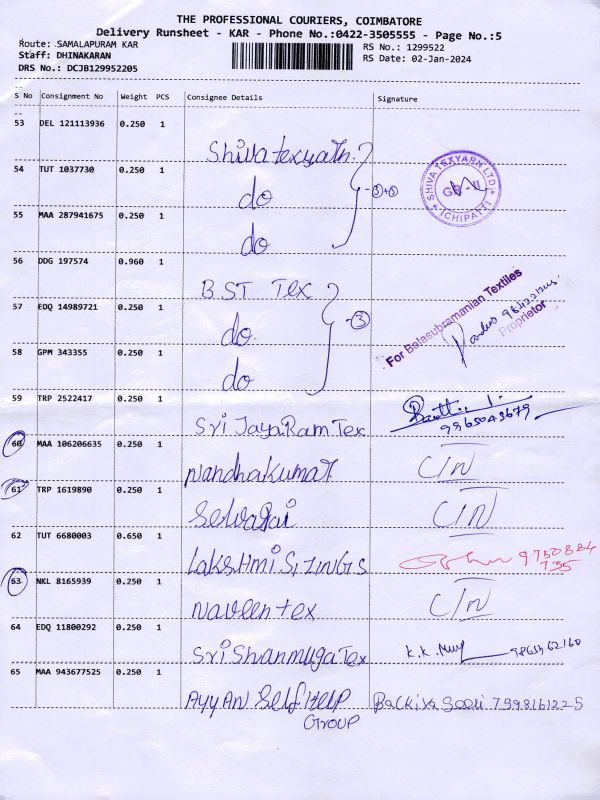 THE PROFESSIONAL COURIERS, COIMBATORE
Delivery Runsheet - KAR - Phone No.:0422-3505555 - Page No.:5
Route: SAMALAPURAM KAR
Staff: DHINAKARAN
DRS No.: DCJB129952205
RS No.: 1299522
RS Date: 02-Jan-2024
S No Consignment No Weight PCS Consignee Details Signature
53 DEL 121113936 0.250 1 Shiva texyarn
54 TUT 1037730 0.250 1 do
55 MAA 287941675 0.250 1 do
SHIVA TEXYARN LTD.
ICHIPATTI
56 DDG 197574 0.960 1 B.S.T Tex
57 EDQ 14989721 0.250 1 do
- 3
58 GPM 343355 0.250 1 do
For Balasubramanian Textiles
Proprietor
59 TRP 2522417 0.250 1 Sri JayaRam Tex
9965043679
60 MAA 106206635 0.250 1 Nandhakumar C/N
61 TRP 1619890 0.250 1 Selvaraj C/N
62 TUT 6680003 0.650 1 LAKSHMI SIZINGS
9750884
735
63 NKL 8165939 0.250 1 Naveen tex C/N
64 EDQ 11800292 0.250 1 Sri Shanmuga Tex K.K.
65 MAA 943677525 0.250 1 AYYAN Self HELP 7598161225
GROUP